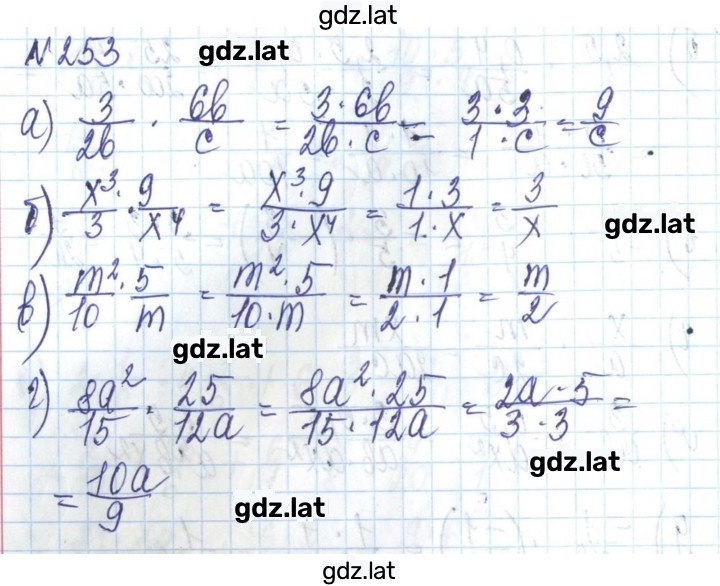 gdz.lat
№253 gdz.lat
а) 3/2b · 6b/c = 3·6b/2b·c = 3·3/1·c = 9/c
б) x³/3 · 9/x⁴ = x³·9/3·x⁴ = 1·3/1·x = 3/x
gdz.lat
в) m²/10 · 5/m = m²·5/10·m = m·1/2·1 = m/2
gdz.lat
г) 8a²/15 · 25/12a = 8a²·25/15·12a = 2a·5/3·3 =
gdz.lat
= 10a/9 gdz.lat
gdz.lat